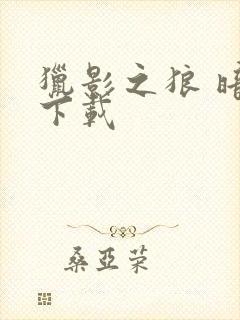 獵影之狼 暗
下載
桑亞荣